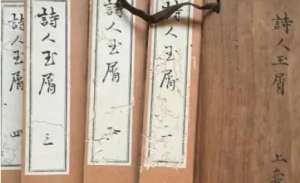 詩人玉屑 上
詩人玉屑 一
詩人玉屑 二
詩人玉屑 三
詩人玉屑 四